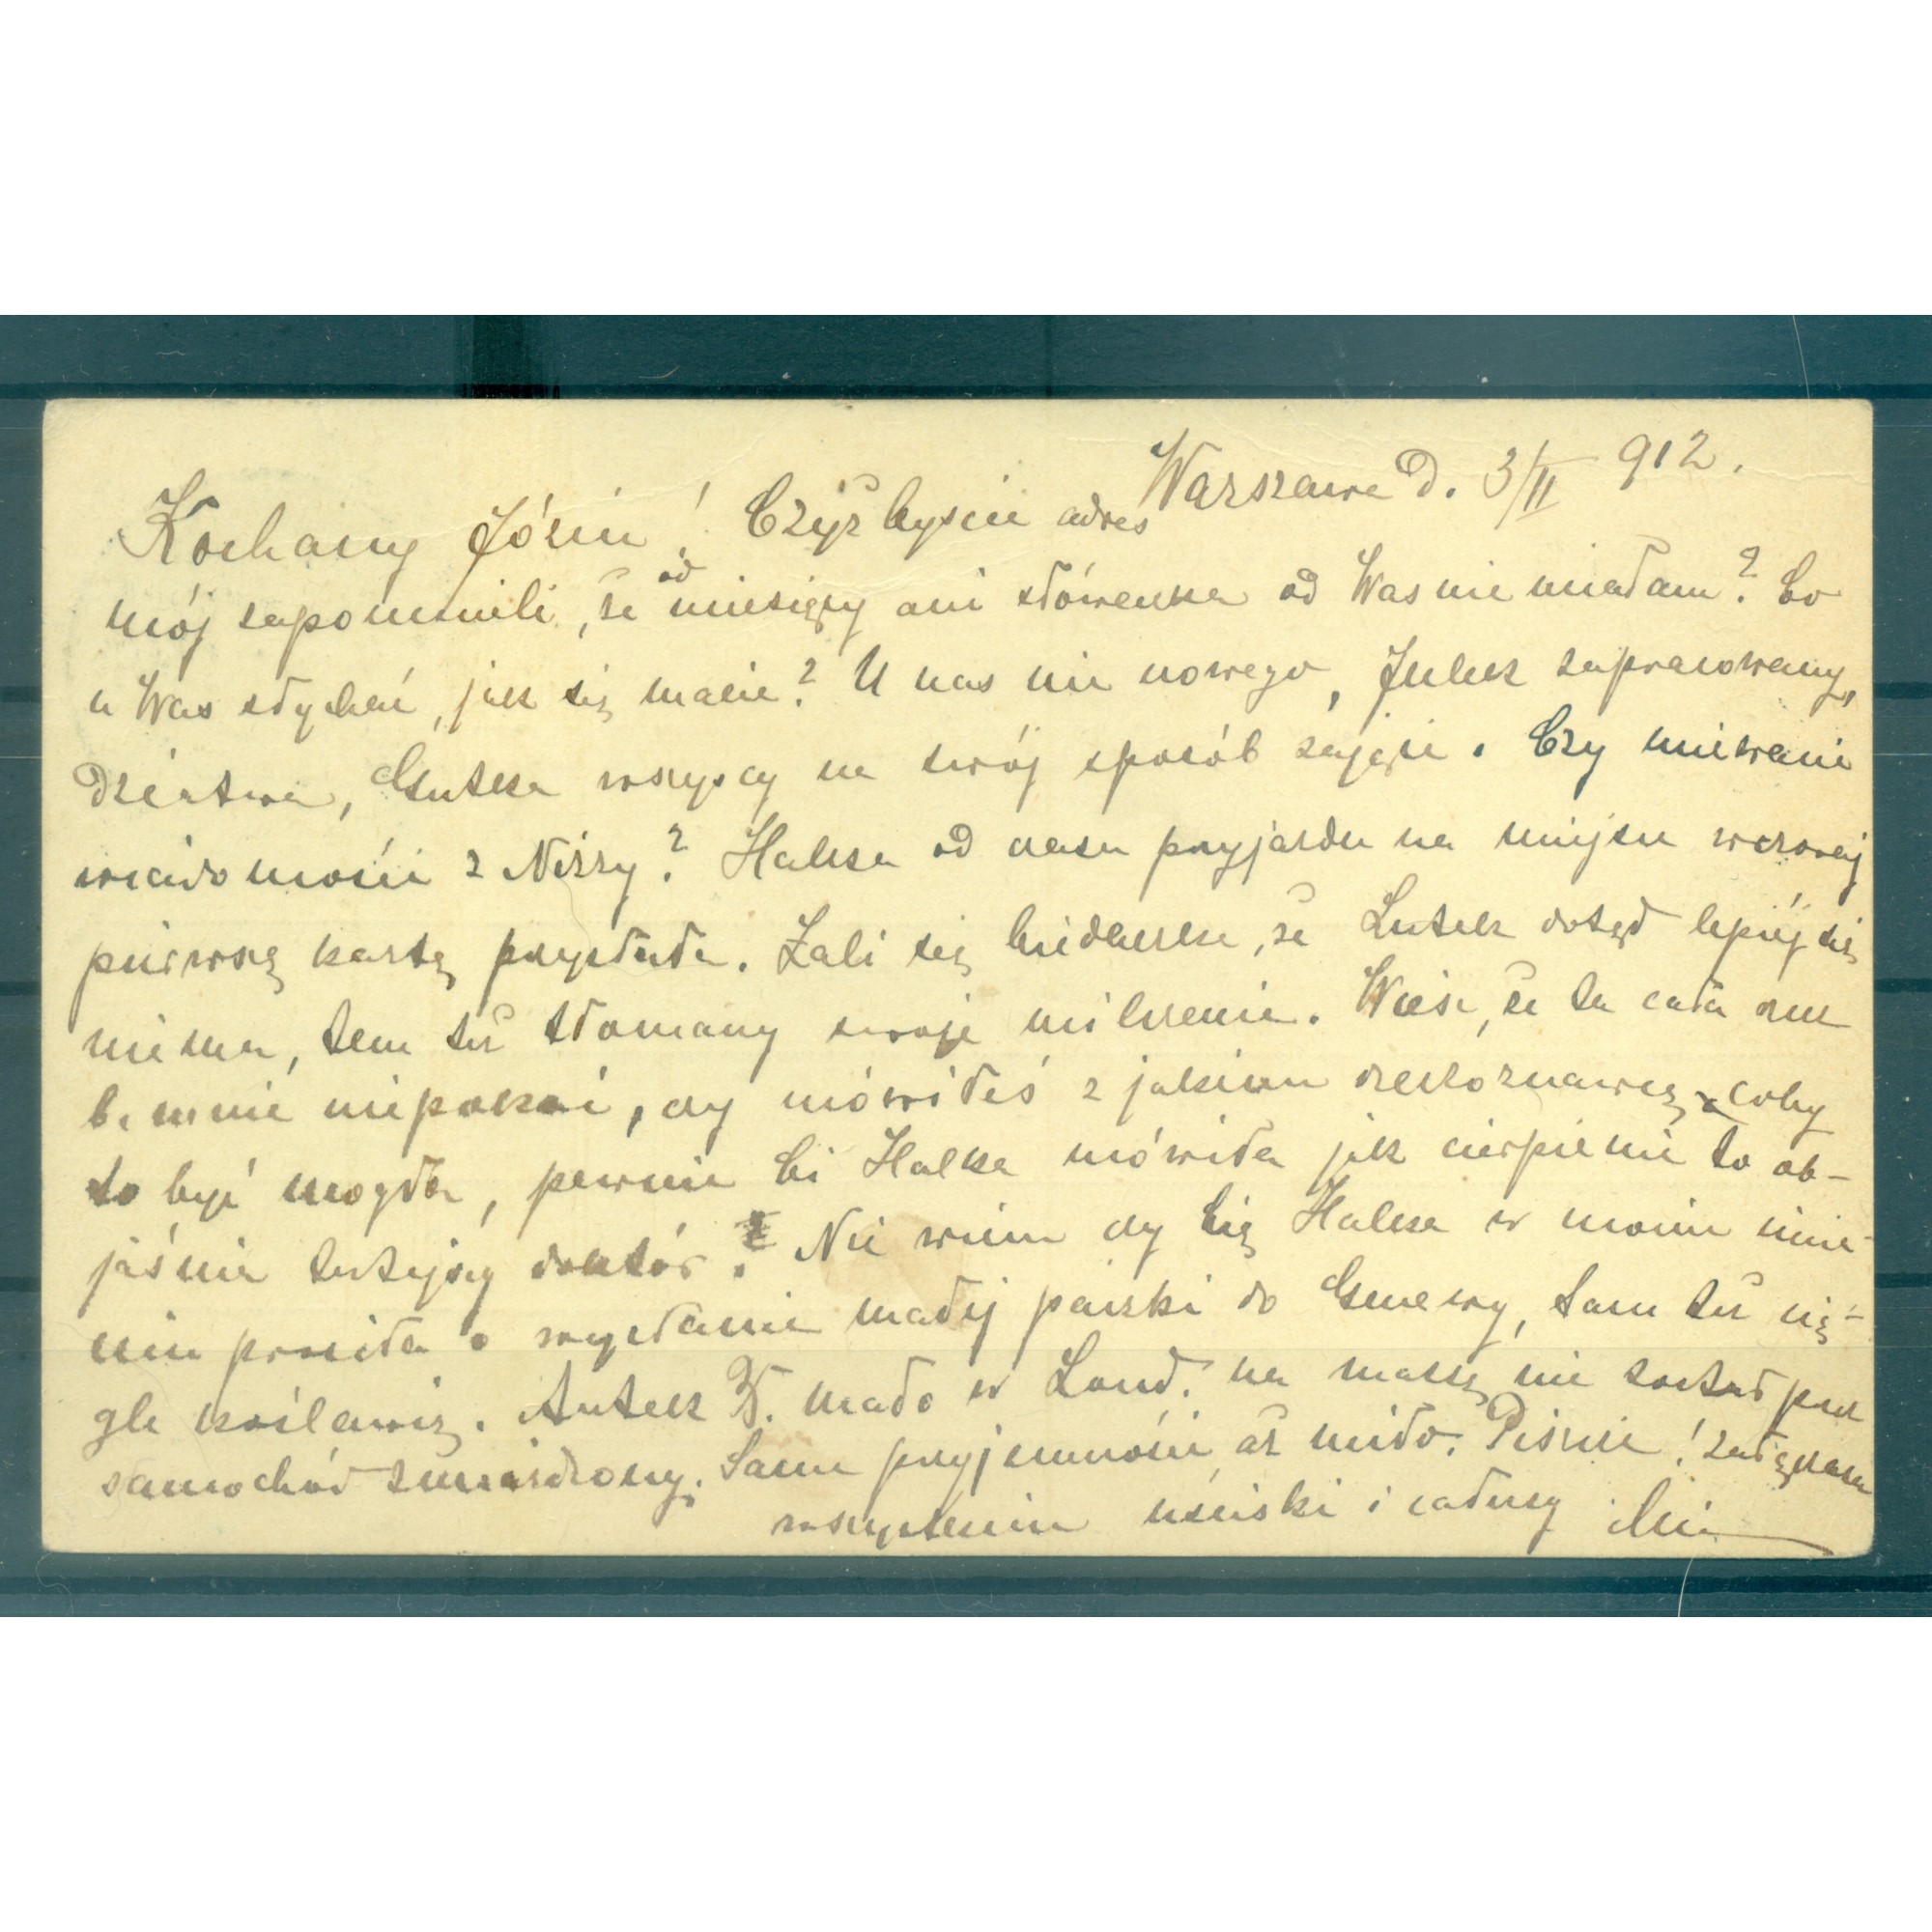 Warszawa d. 3/II 912.
Kochany Józiu! Czyżbyscie adres
mój zapomnieli, że od miesięcy ani słówenka od Was nie miałam? Co
u Was słychać, jak się macie? U nas nic nowego, Julek zapracowany,
dziatwa, Gutka wszyscy na swój sposób zajęci. Czy miewacie
wiadomości z Nizzy? Halka od czasu przyjazdu na miejsce wczoraj
pierwszą kartę przysłała. Żali się biedaczka, że Lutek dotąd lepiej się
nie ma, tem też tłomaczy swoje milczenie. Wiesz, że ta cała
b. mnie niepokoi, czy mówiłeś z jakim rzeczoznawcą coby
to być mogło, pewnie Ci Halka mówiła jak cierpienie to ob-
jaśnia tutejszy doktór? Nie wiem czy Cię Halka w moim imie-
niu prosiła o wysłanie małej paczki do Genewy, tam też cią-
gle koślawią. Antek W. mało w Lond. na maskę nie został przez
samochód zmiażdżony. Same przyjemności, aż miło. Piszcie! załączam
wszystkim uściski i całusy